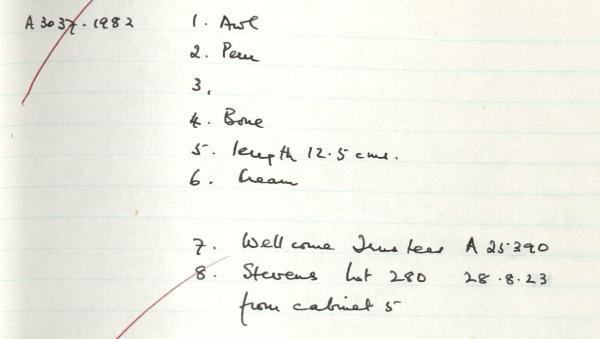 A 3037.1982
1. Awl
2. Peru
3.
4. Bone
5. length 12.5 cms.
6. Cream
7. Wellcome Trustees A 25390
8. Stevens Lot 280 28.8.23
from cabinet 5